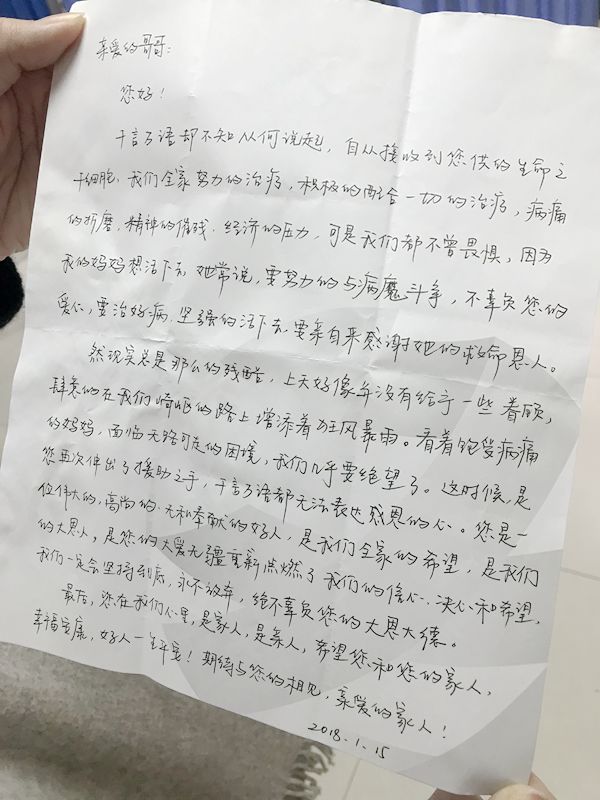 亲爱的哥哥：
您好！
千言万语却不知从何说起，自从接收到您供的生命之
干细胞，我们全家努力的治病，积极的配合一切的治疗，病痛
的折磨，精神的催残，经济的压力，可是我们都不曾畏惧，因为
我的妈妈想活下去，她常说，要努力的与病魔斗争，不辜负您的
爱心，要治好病，坚强的活下去，要亲自来感谢她的救命恩人。
然现实总是那么的残酷，上天好像并没有给予一些眷顾，
肆意地在我们崎岖的路上增添着狂风暴雨。看着饱受病痛
的妈妈，面临无路可走的困境，我们几乎要绝望了。这时候，是
您再次伸出了援助之手，千言万语都无法表达感恩的心。您是一
位伟大的，高尚的，无私奉献的好人，是我们全家的希望，是我们
的大恩人，是您的大爱无疆重新点燃了我们的信心、决心和希望，
我们一定会坚持到底，永不放弃，绝不辜负您的大恩大德。
最后，您在我们心里，是家人，是亲人，希望您和您的家人，
幸福安康，好人一生平安！期待与您的相见，亲爱的家人！
2018.1.15